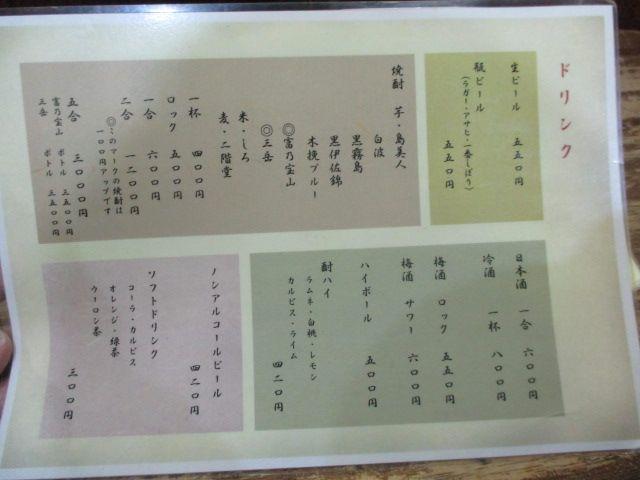 ドリンク
生ビール 五五〇円
瓶ビール 五五〇円
（ラガー・アサヒ・一番しぼり）
焼酎 芋・島美人
白波
黒霧島
黒伊佐錦
木挽ブルー
◎富乃宝山
◎三岳
米・しろ
麦・二階堂
一杯 四〇〇円
ロック 五〇〇円
一合 六〇〇円
二合 一二〇〇円
◎このマークの焼酎は
一〇〇円アップです
五合 三〇〇〇円
富乃宝山 ボトル 三五〇〇円
三岳 ボトル 三五〇〇円
日本酒 一合 六〇〇円
冷酒 一杯 八〇〇円
梅酒 ロック 五五〇円
梅酒 サワー 六〇〇円
ハイボール 五〇〇円
酎ハイ
ラムネ・白桃・レモン
カルピス・ライム
四二〇円
ノンアルコールビール 四二〇円
ソフトドリンク
コーラ・カルピス
オレンジ・緑茶
ウーロン茶
三〇〇円